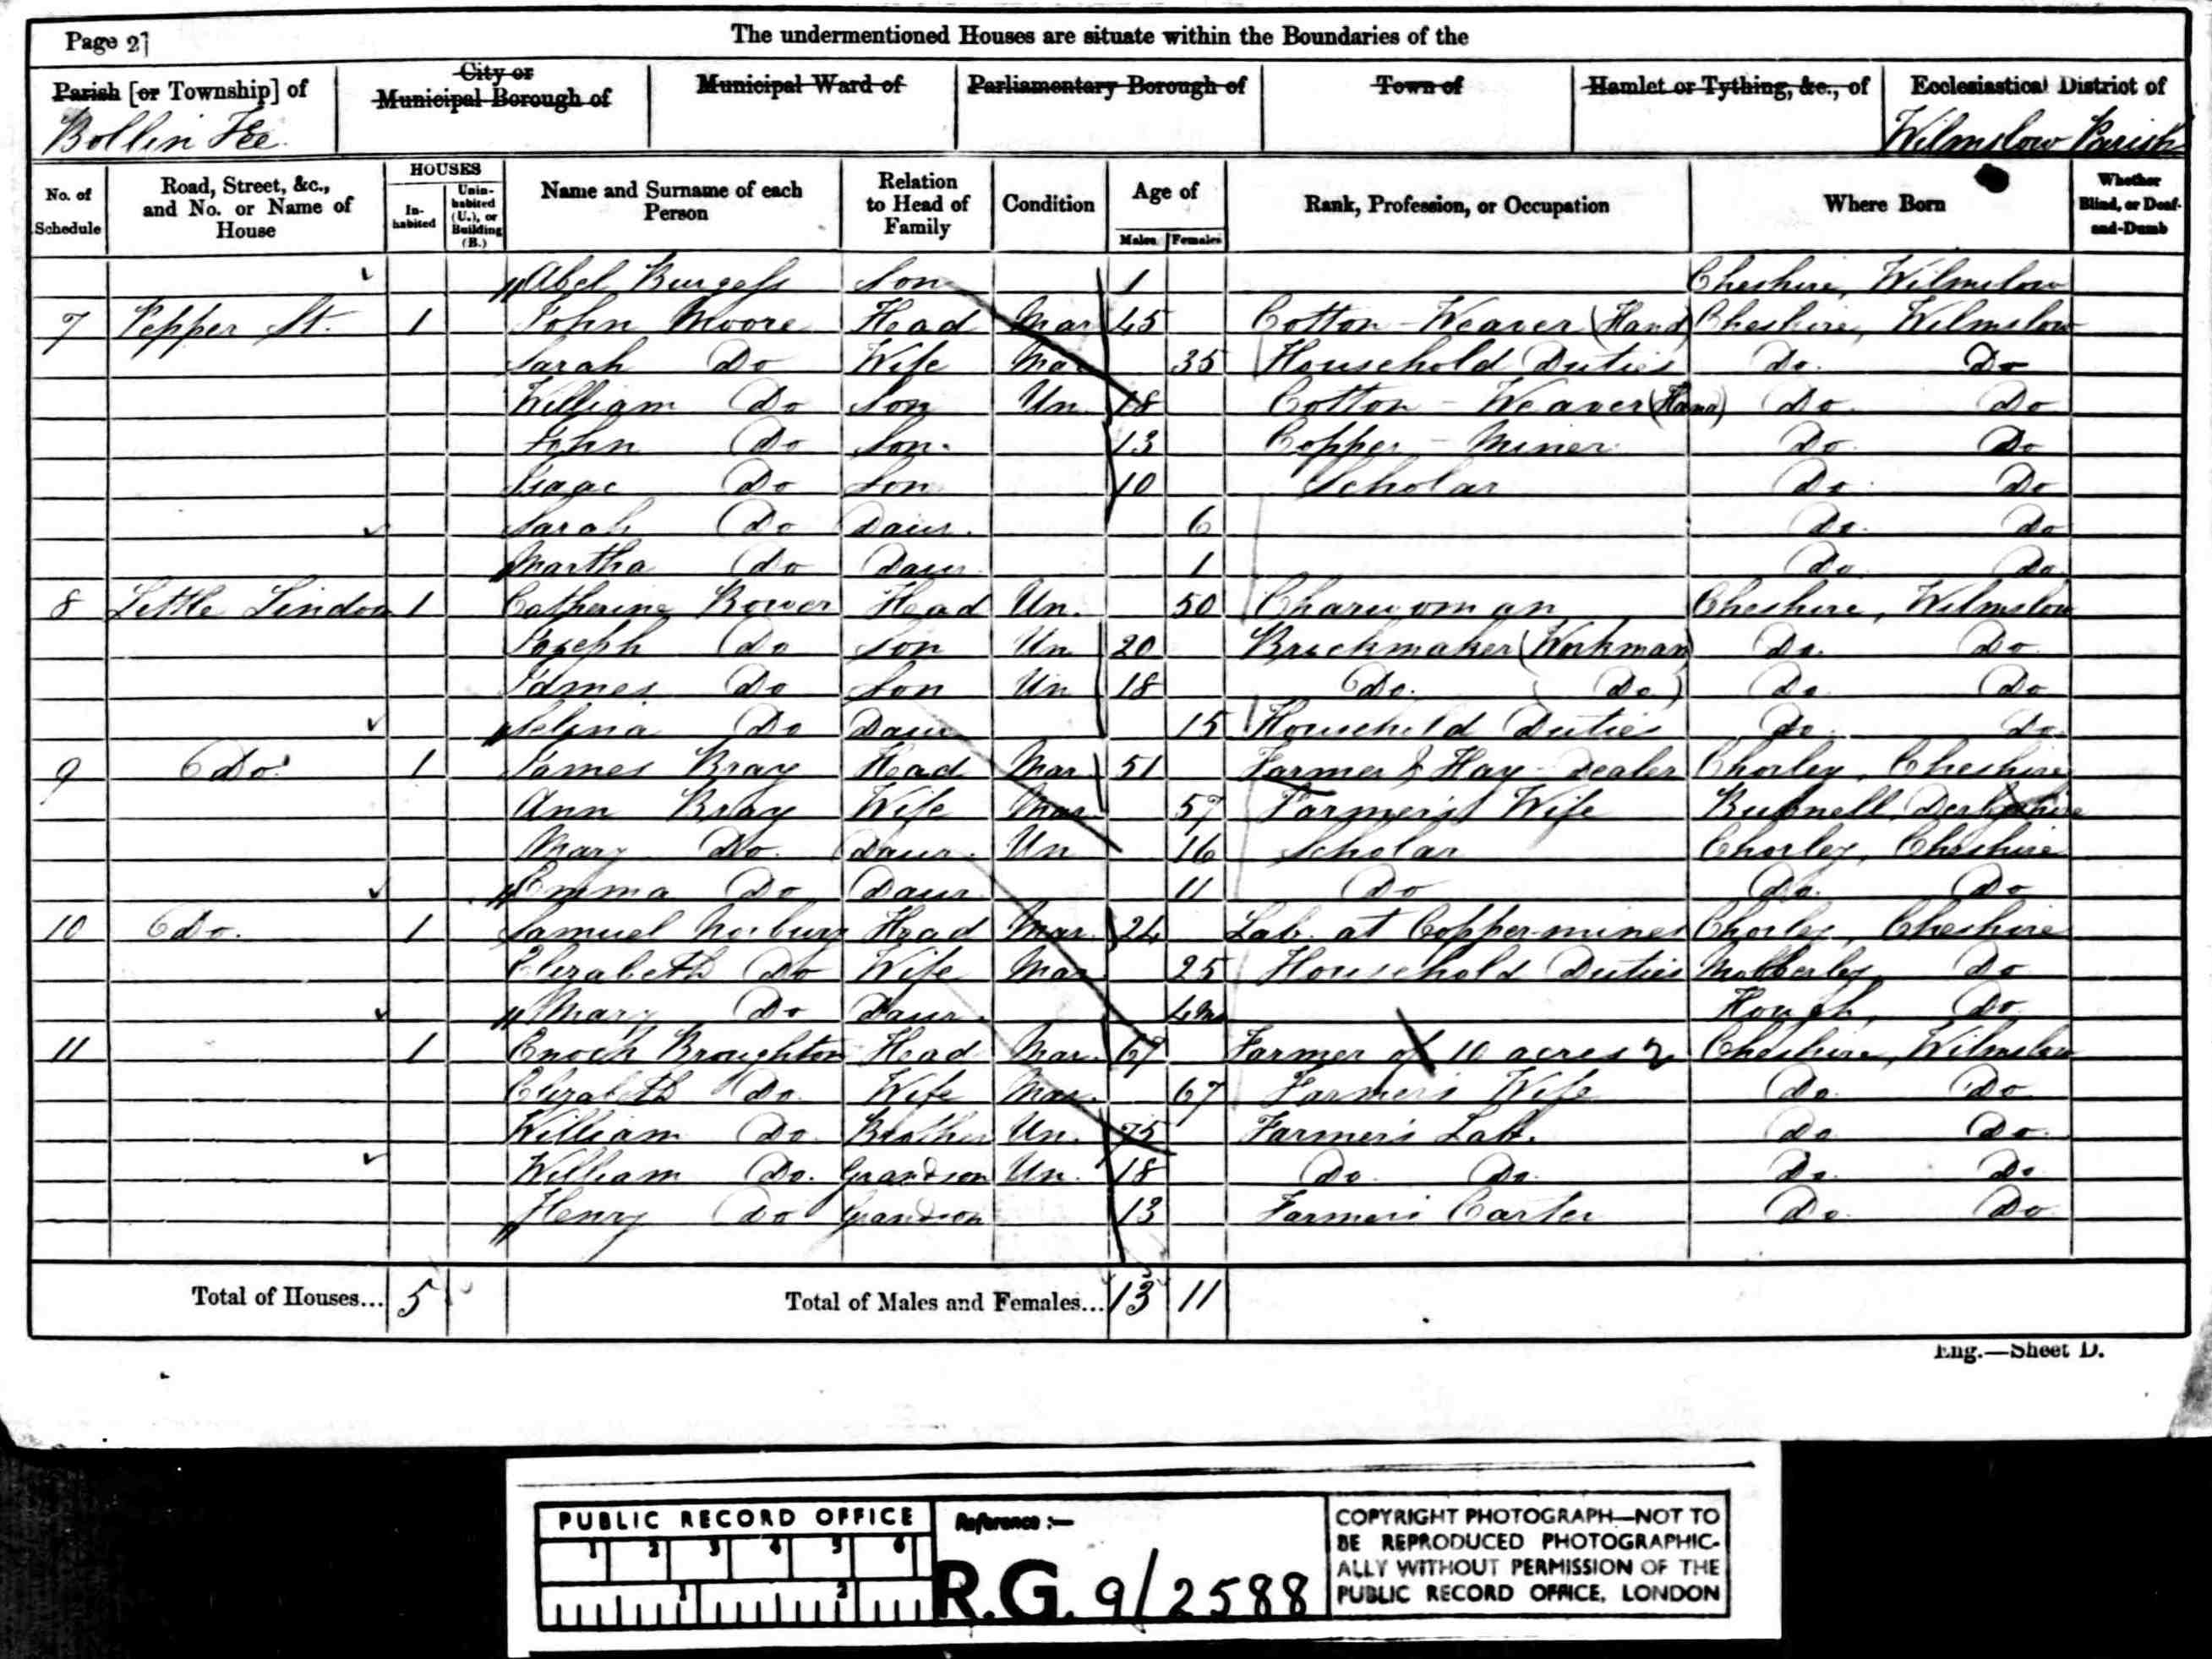 Page 2]
The undermentioned Houses are situate within the Boundaries of the
Parish [or Township] of
City or Municipal Borough of
Municipal Ward of
Parliamentary Borough of
Town of
Hamlet or Tything, &c., of
Ecclesiastical District of
Bollin Fee
Wilmslow Parish
No. of Schedule
Road, Street, &c., and No. or Name of House
HOUSES
In-habited
Unin-habited (U.), or Building (B.)
Name and Surname of each Person
Relation to Head of Family
Condition
Age of
Males
Females
Rank, Profession, or Occupation
Where Born
Whether Blind, or Deaf-and-Dumb
Abel Burgess Son 1 Cheshire, Wilmslow
7 Pepper St. 1 John Moore Head Mar 45 Cotton-Weaver (Hand) Cheshire, Wilmslow
Sarah Do Wife Mar 35 Household Duties Do. Do
William Do Son Un 18 Cotton - Weaver (Hand) Do. Do
John Do Son. 13 Copper - Miner Do. Do
Isaac Do Son 10 Scholar Do. Do
Sarah Do Daur. 6 Do. Do
Martha Do Daur. 1 Do. Do.
8 Little Lindow 1 Catherine Bower Head Un. 50 Charwoman Cheshire, Wilmslow
Joseph Do Son Un 20 Brickmaker (Workman) Do. Do
James Do Son Un 18 Do. (Do.) Do. Do
Selina Do Daur 15 Household Duties Do. Do.
9 Do. 1 James Bray Head Mar. 51 Farmer & Hay-Dealer Chorley, Cheshire
Ann Bray Wife Mar. 57 Farmer's Wife Derbyshire
Mary Do. Daur. Un 16 Scholar Chorley, Cheshire
Emma Do Daur 11 Do Do. Do
10 Do. 1 Samuel Norbury Head Mar. 24 Lab. at Copper-mines Chorley, Cheshire
Elizabeth Do Wife Mar 25 Household Duties Mobberley Do
Mary Do Daur. 4m Hough, Do.
11 1 Enoch Broughton Head Mar. 67 Farmer of 10 acres Cheshire, Wilmslow
Elizabeth Do. Wife Mar. 67 Farmer's Wife Do. Do
William Do. Brother Un. 75 Farmer's Lab. Do. Do.
William Do. Grandson Un. 18 Do. Do. Do. Do
Henry Do Grandson 13 Farmer's Carter Do. Do
Total of Houses... 5
Total of Males and Females... 13 11
Eng.—Sheet D.
PUBLIC RECORD OFFICE
1 2 3 4 5 6
1 2
Reference :—
R.G. 9/2588
COPYRIGHT PHOTOGRAPH—NOT TO
BE REPRODUCED PHOTOGRAPHIC-
ALLY WITHOUT PERMISSION OF THE
PUBLIC RECORD OFFICE, LONDON